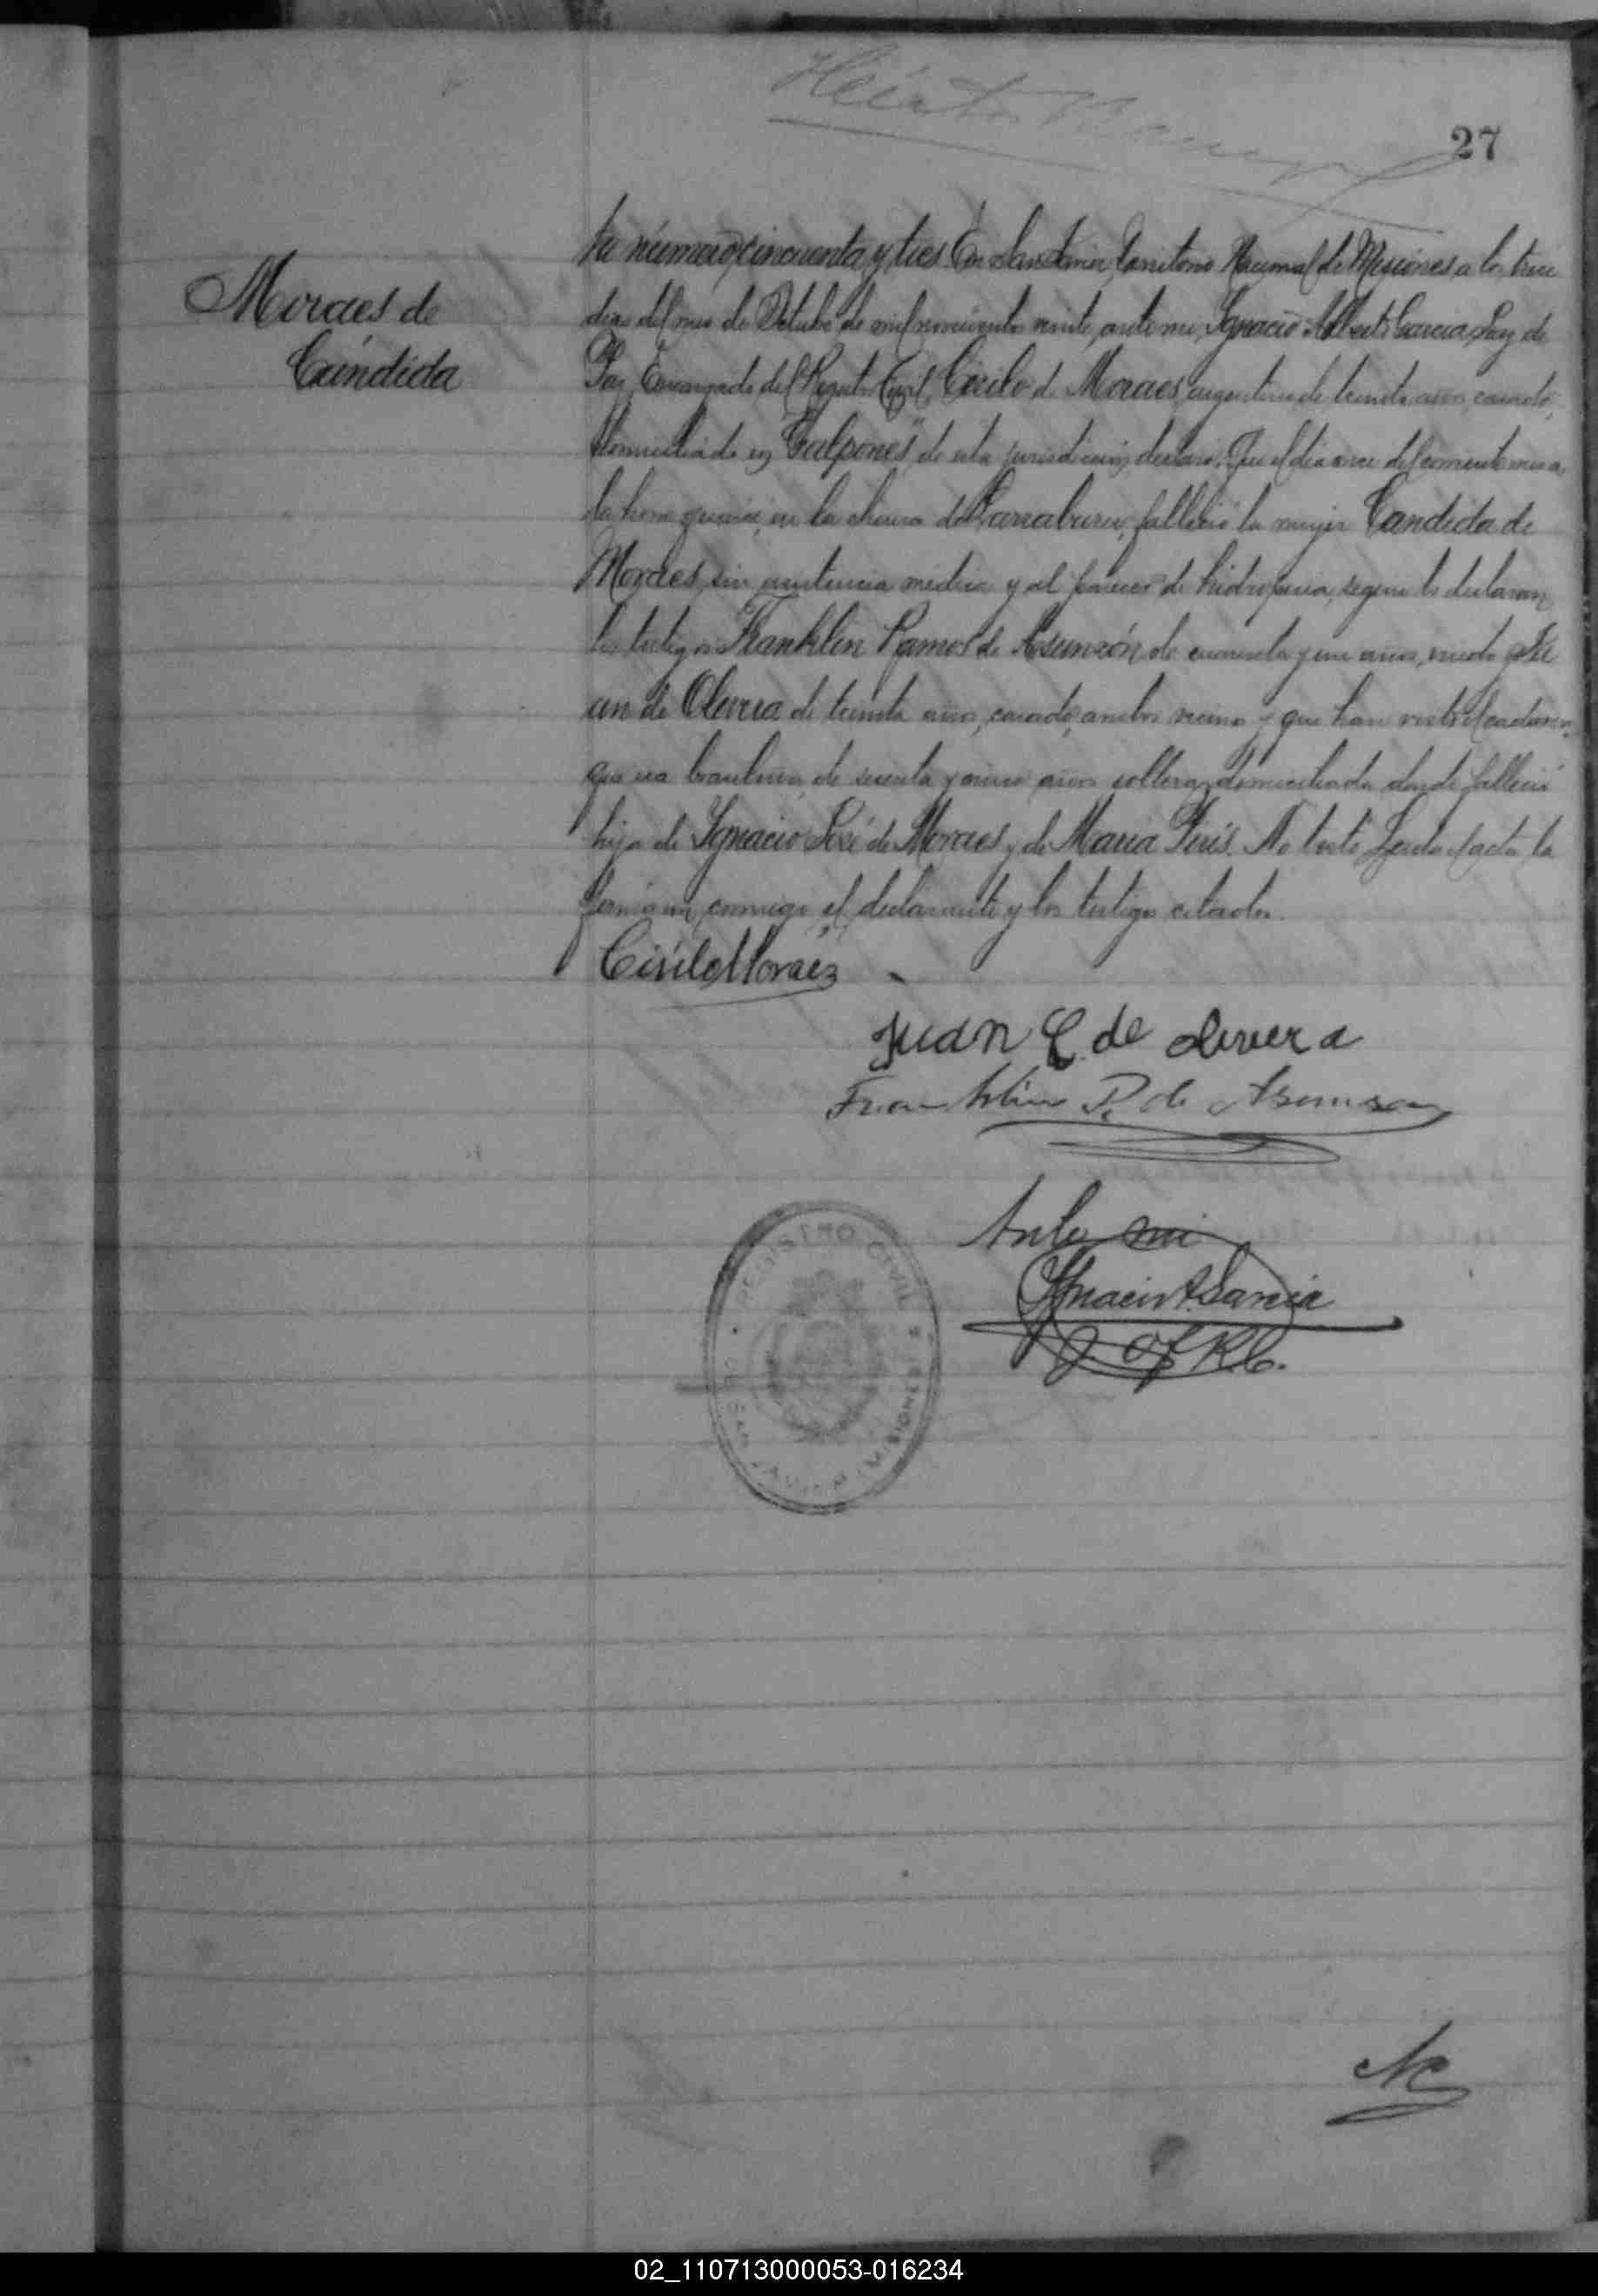 27
Moraes de
Cándida
número cincuenta y tres En San Javier, Territorio Nacional de Misiones, a los trece
dias del mes de Octubre de mil novecientos veinte, ante mi, Ignacio Alberto Garcia, Juez de
Paz, Encargado del Registro Civil, Cirilo de Moraes, argentino de treinta años, casado,
domiciliado en "Galpones" de esta jurisdicción, declaró: Que el dia once del corriente mes a
la hora quince, en la chacra de falleció la mujer Candida de
Moraes, sin asistencia médica y al parecer de hidropesia, segun lo declaran
los testigos Franklin Ramos de Asunzón de cuarenta y un años, viudo y Ju
an de Olivera de treinta años, casado, ambos vecinos y que han visto el cadaver;
que era brasileña, de sesenta y cinco años soltera, domiciliada donde falleció
hija de Ignacio José de Moraes y de Maria Piris. No testó. Leida el acta, la
firmaron conmigo el declarante y los testigos citados.
Cirilo Moraes
Juan C. de olivera
Franklin R. de Asunson
Ante mi
Ignacio A. Garcia
J. Of R. C.
REGISTRO CIVIL
DE SAN JAVIER (MISIONES)
02_110713000053-016234